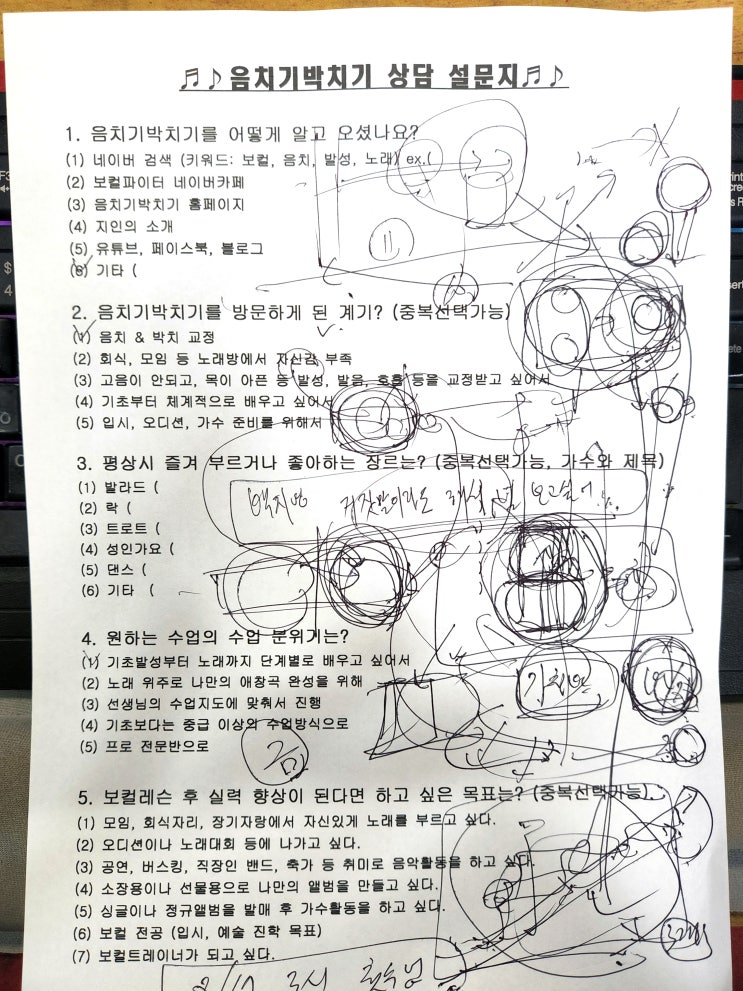 ♬♪음치기박치기 상담 설문지♬♪
1. 음치기박치기를 어떻게 알고 오셨나요?
(1) 네이버 검색 (키워드: 보컬, 음치, 발성, 노래) ex.( )
(2) 보컬파이터 네이버카페
(3) 음치기박치기 홈페이지
(4) 지인의 소개
(5) 유튜브, 페이스북, 블로그
(6) 기타 (
2. 음치기박치기를 방문하게 된 계기? (중복선택가능)
(1) 음치 & 박치 교정
(2) 회식, 모임 등 노래방에서 자신감 부족
(3) 고음이 안되고, 목이 아픈 등 발성, 발음, 호흡 등을 교정받고 싶어서
(4) 기초부터 체계적으로 배우고 싶어서
(5) 입시, 오디션, 가수 준비를 위해서
3. 평상시 즐겨 부르거나 좋아하는 장르는? (중복선택가능, 가수와 제목)
(1) 발라드 (
백지영 거짓말이라도 해서 널 보고싶어
(2) 락 (
(3) 트로트 (
(4) 성인가요 (
(5) 댄스 (
(6) 기타 (
4. 원하는 수업의 수업 분위기는?
(1) 기초발성부터 노래까지 단계별로 배우고 싶어서
(2) 노래 위주로 나만의 애창곡 완성을 위해
(3) 선생님의 수업지도에 맞춰서 진행
(4) 기초보다는 중급 이상의 수업방식으로
(5) 프로 전문반으로
금
5. 보컬레슨 후 실력 향상이 된다면 하고 싶은 목표는? (중복선택가능).
(1) 모임, 회식자리, 장기자랑에서 자신있게 노래를 부르고 싶다.
(2) 오디션이나 노래대회 등에 나가고 싶다.
(3) 공연, 버스킹, 직장인 밴드, 축가 등 취미로 음악활동을 하고 싶다.
(4) 소장용이나 선물용으로 나만의 앨범을 만들고 싶다.
(5) 싱글이나 정규앨범을 발매 후 가수활동을 하고 싶다.
(6) 보컬 전공 (입시, 예술 진학 목표)
(7) 보컬트레이너가 되고 싶다.